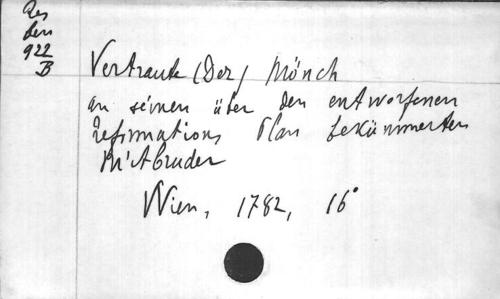 Res
Ben
922
B
Vertraute (Der) Mönch
an seinen über den entworfenen
Reformations Plan bekümmerten
Mitbruder
Wien, 1782, 16°